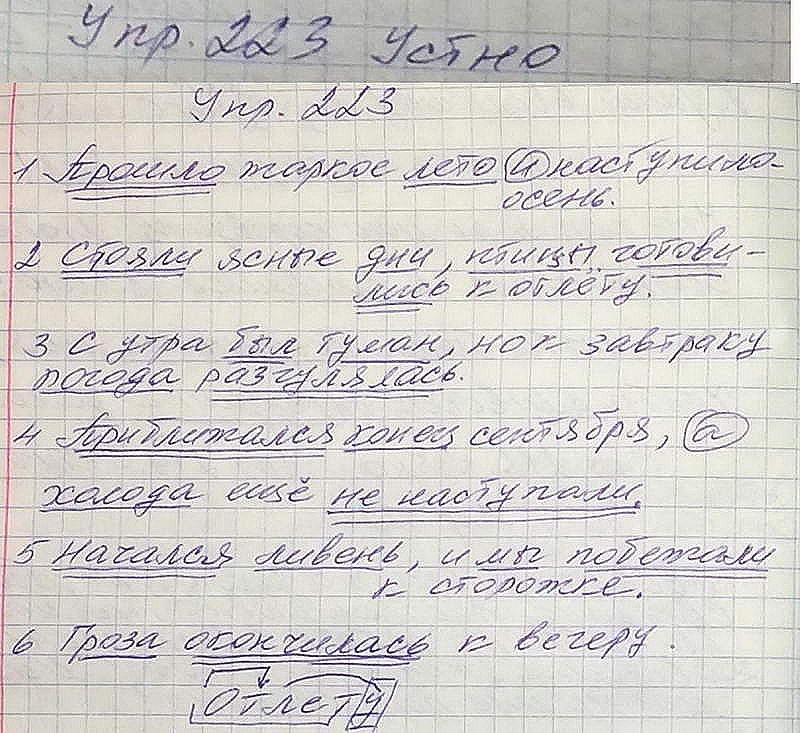 Упр. 223 Устно
Упр. 223
1 Прошло жаркое лето и наступило
осень.
2 Стояли ясные дни, птицы готови-
лись к отлёту.
3 С утра был туман, но к завтраку
погода разгулялась.
4 Приближался конец сентября, а
холода ещё не наступали.
5 Начался ливень, и мы побежали
к сторожке.
6 Гроза окончилась к вечеру.
Отлету